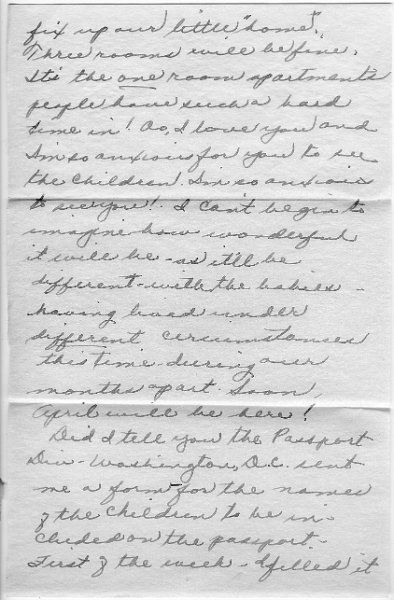 fix up our little "home".
Three rooms will be fine.
It's the one room apartments
people have such a hard
time in! Oo, I love you and
I'm so anxious for you to see
the children! I'm so anxious
to see you! I can't begin to
imagine how wonderful
it will be - as it'll be
different - with the babies -
having lived under
different circumstances
this time - during our
months apart. Soon,
April will be here!
Did I tell you the Passport
Div - Washington, D.C. sent
me a form for the names
of the children to be in-
cluded on the passport -
First of the week - I filled it